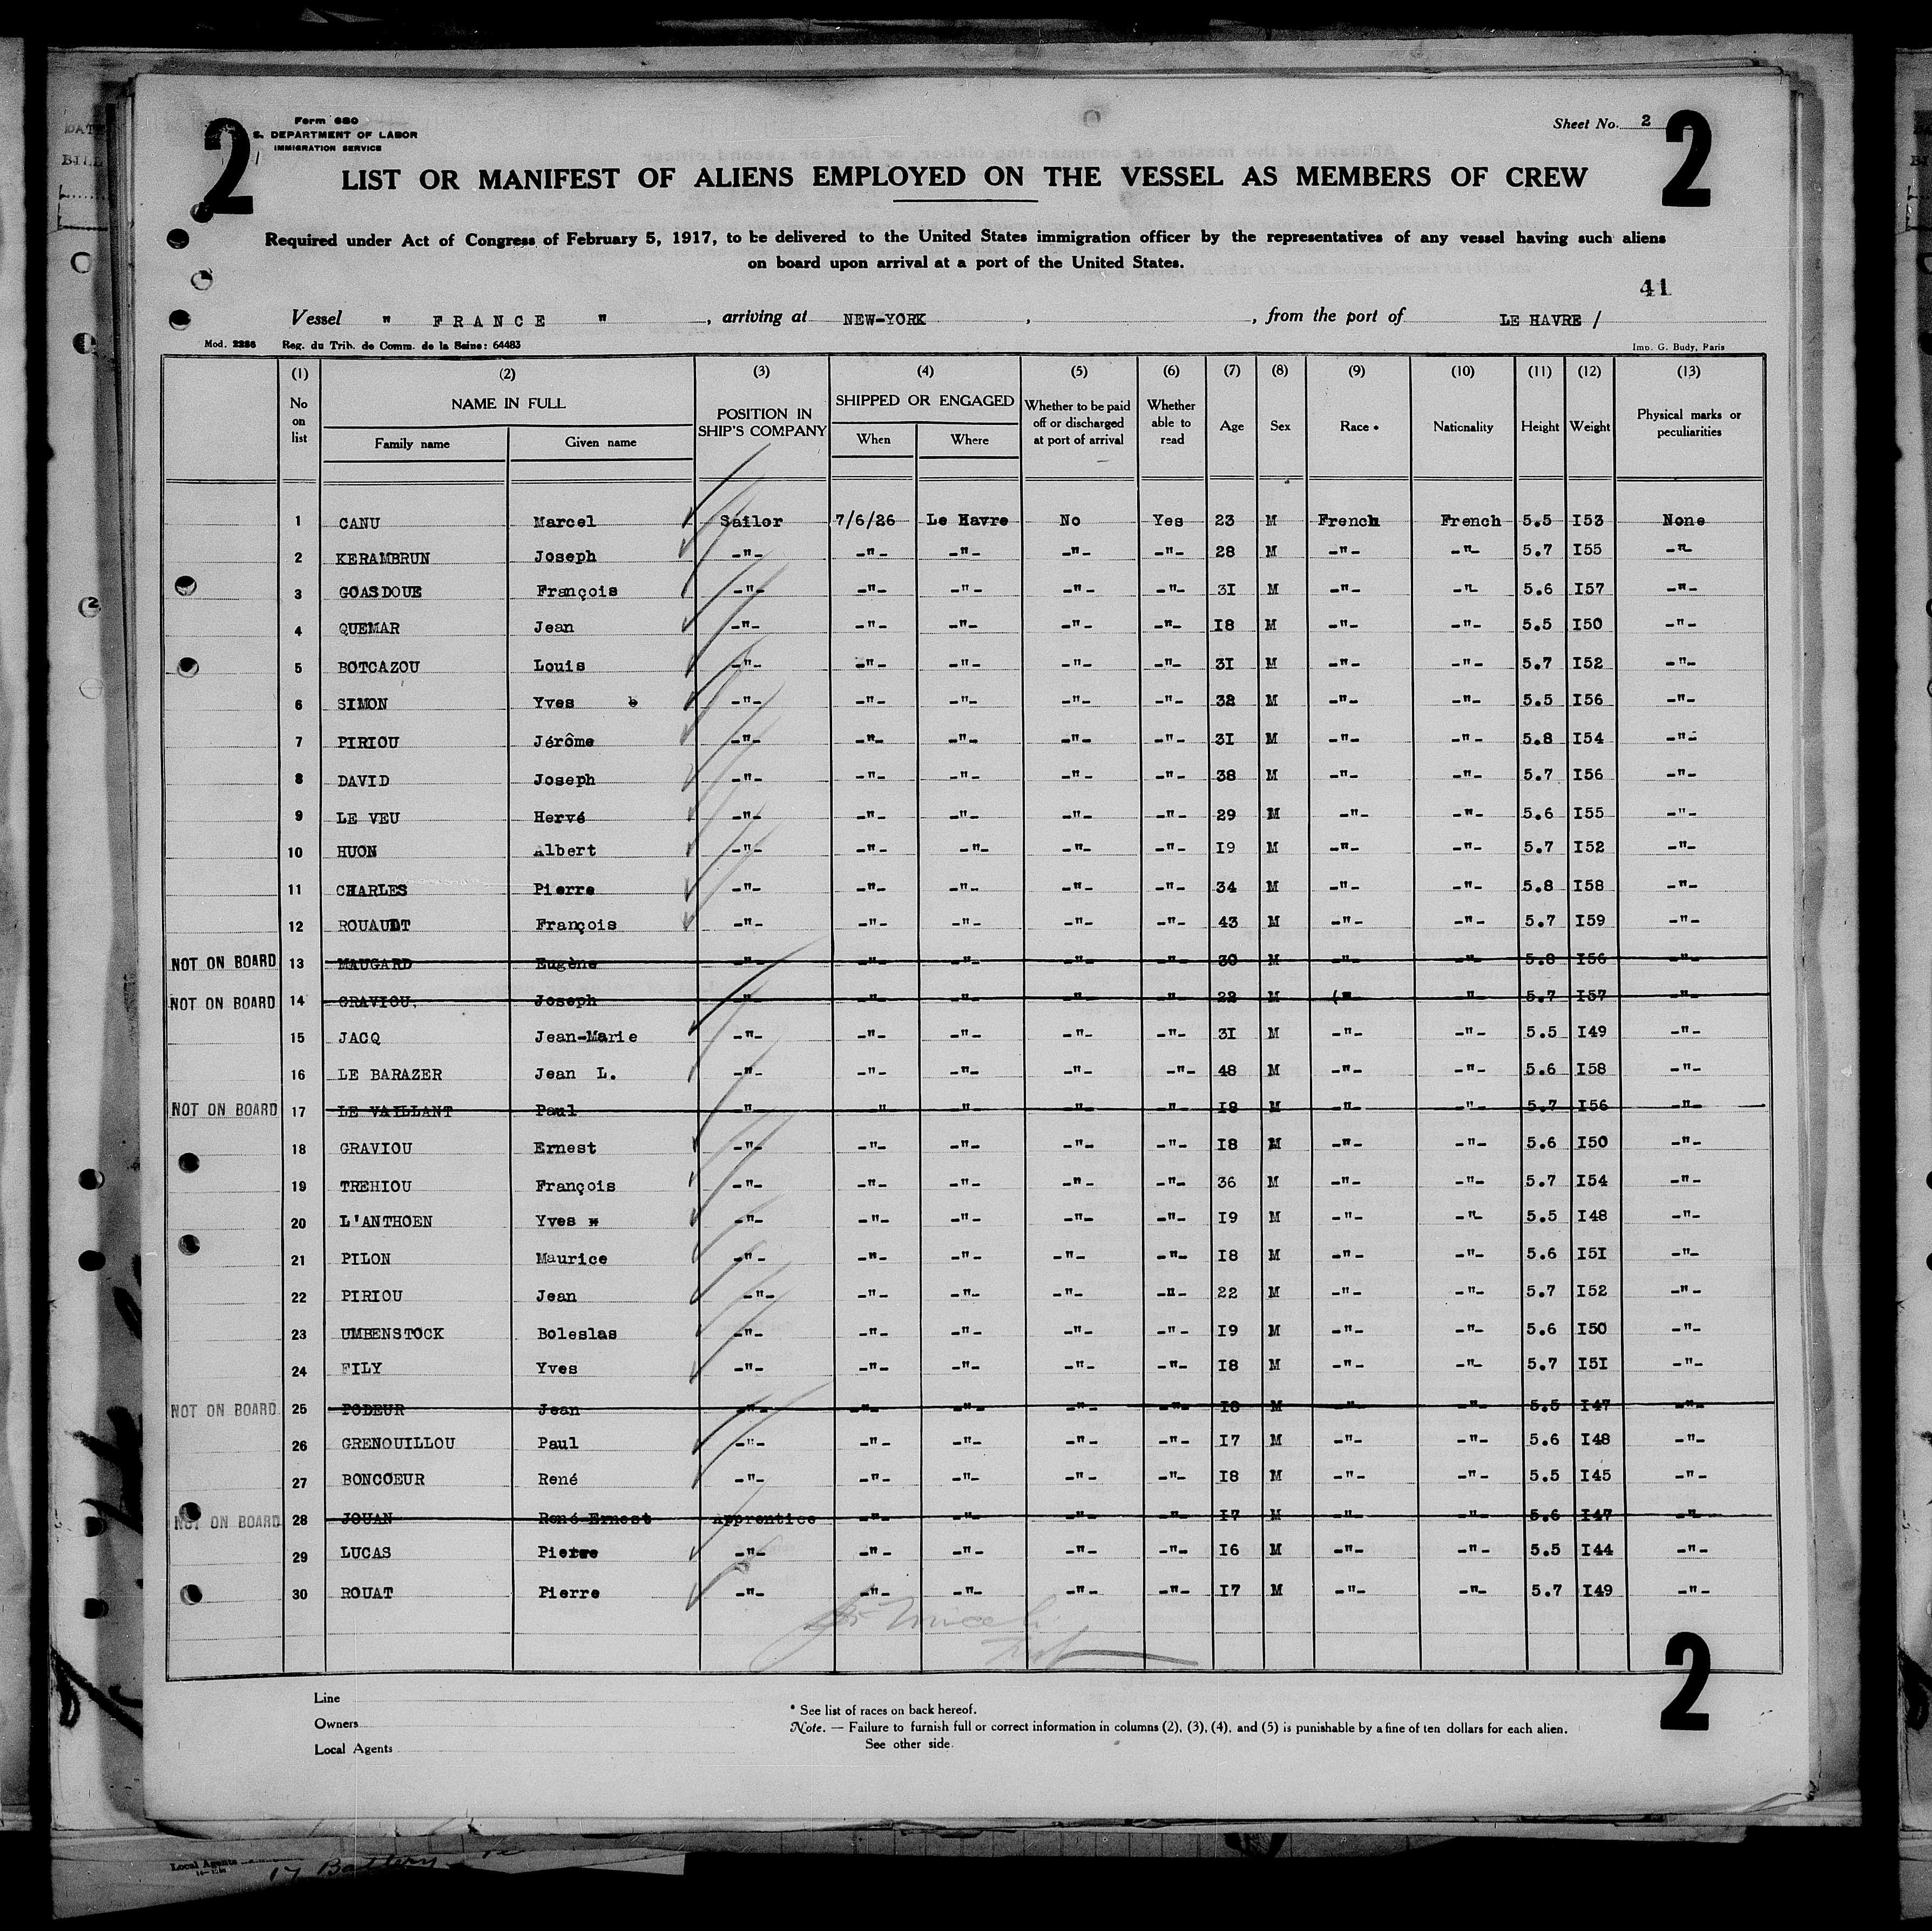 Form 680
S. DEPARTMENT OF LABOR
IMMIGRATION SERVICE
Sheet No. 2
2
2
LIST OR MANIFEST OF ALIENS EMPLOYED ON THE VESSEL AS MEMBERS OF CREW
Required under Act of Congress of February 5, 1917, to be delivered to the United States immigration officer by the representatives of any vessel having such aliens
on board upon arrival at a port of the United States.
41
Vessel " FRANCE " , arriving at NEW-YORK , , from the port of LE HAVRE /
Mod. 2286 Reg. du Trib. de Comm. de la Seine: 64483 Imp. G. Budy, Paris
(1) (2) (3) (4) (5) (6) (7) (8) (9) (10) (11) (12) (13)
No on list NAME IN FULL POSITION IN SHIP'S COMPANY SHIPPED OR ENGAGED Whether to be paid off or discharged at port of arrival Whether able to read Age Sex Race * Nationality Height Weight Physical marks or peculiarities
Family name Given name When Where
1 CANU Marcel Sailor 7/6/26 Le Havre No Yes 23 M French French 5.5 I53 None
2 KERAMBRUN Joseph -"- -"- -"- -"- -"- 28 M -"- -"- 5.7 I55 -"-
3 GOASDOUE François -"- -"- -"- -"- -"- 3I M -"- -"- 5.6 I57 -"-
4 QUEMAR Jean -"- -"- -"- -"- -"- I8 M -"- -"- 5.5 I50 -"-
5 BOTCAZOU Louis -"- -"- -"- -"- -"- 3I M -"- -"- 5.7 I52 -"-
6 SIMON Yves -"- -"- -"- -"- -"- 32 M -"- -"- 5.5 I56 -"-
7 PIRIOU Jérôme -"- -"- -"- -"- -"- 3I M -"- -"- 5.8 I54 -"-
8 DAVID Joseph -"- -"- -"- -"- -"- 38 M -"- -"- 5.7 I56 -"-
9 LE VEU Hervé -"- -"- -"- -"- -"- 29 M -"- -"- 5.6 I55 -"-
10 HUON Albert -"- -"- -"- -"- -"- I9 M -"- -"- 5.7 I52 -"-
11 CHARLES Pierre -"- -"- -"- -"- -"- 34 M -"- -"- 5.8 I58 -"-
12 ROUAULT François -"- -"- -"- -"- -"- 43 M -"- -"- 5.7 I59 -"-
NOT ON BOARD 13 MAUGARD Eugène -"- -"- -"- -"- -"- 30 M -"- -"- 5.8 I56 -"-
NOT ON BOARD 14 GRAVIOU. Joseph -"- -"- -"- -"- -"- 22 M ("- -"- 5.7 I57 -"-
15 JACQ Jean-Marie -"- -"- -"- -"- -"- 3I M -"- -"- 5.5 I49 -"-
16 LE BARAZER Jean L. -"- -"- -"- -"- -"- 48 M -"- -"- 5.6 I58 -"-
NOT ON BOARD 17 LE VAILLANT Paul -"- -"- -"- -"- -"- I8 M -"- -"- 5.7 I56 -"-
18 GRAVIOU Ernest -"- -"- -"- -"- -"- I8 M -"- -"- 5.6 I50 -"-
19 TREHIOU François -"- -"- -"- -"- -"- 36 M -"- -"- 5.7 I54 -"-
20 L'ANTHOEN Yves -"- -"- -"- -"- -"- I9 M -"- -"- 5.5 I48 -"-
21 PILON Maurice -"- -"- -"- -"- -"- I8 M -"- -"- 5.6 I5I -"-
22 PIRIOU Jean -"- -"- -"- -"- -"- 22 M -"- -"- 5.7 I52 -"-
23 UMBENSTOCK Boleslas -"- -"- -"- -"- -"- I9 M -"- -"- 5.6 I50 -"-
24 FILY Yves -"- -"- -"- -"- -"- I8 M -"- -"- 5.7 I5I -"-
NOT ON BOARD 25 PODEUR Jean -"- -"- -"- -"- -"- I8 M -"- -"- 5.5 I47 -"-
26 GRENOUILLOU Paul -"- -"- -"- -"- -"- I7 M -"- -"- 5.6 I48 -"-
27 BONCOEUR René -"- -"- -"- -"- -"- I8 M -"- -"- 5.5 I45 -"-
NOT ON BOARD 28 JOUAN René Ernest Apprentice -"- -"- -"- -"- I7 M -"- -"- 5.6 I47 -"-
29 LUCAS Pierre -"- -"- -"- -"- -"- I6 M -"- -"- 5.5 I44 -"-
30 ROUAT Pierre -"- -"- -"- -"- -"- I7 M -"- -"- 5.7 I49 -"-
2
Line
Owners
Local Agents
* See list of races on back hereof.
Note. — Failure to furnish full or correct information in columns (2), (3), (4), and (5) is punishable by a fine of ten dollars for each alien.
See other side.
Local Agents
17 Battery